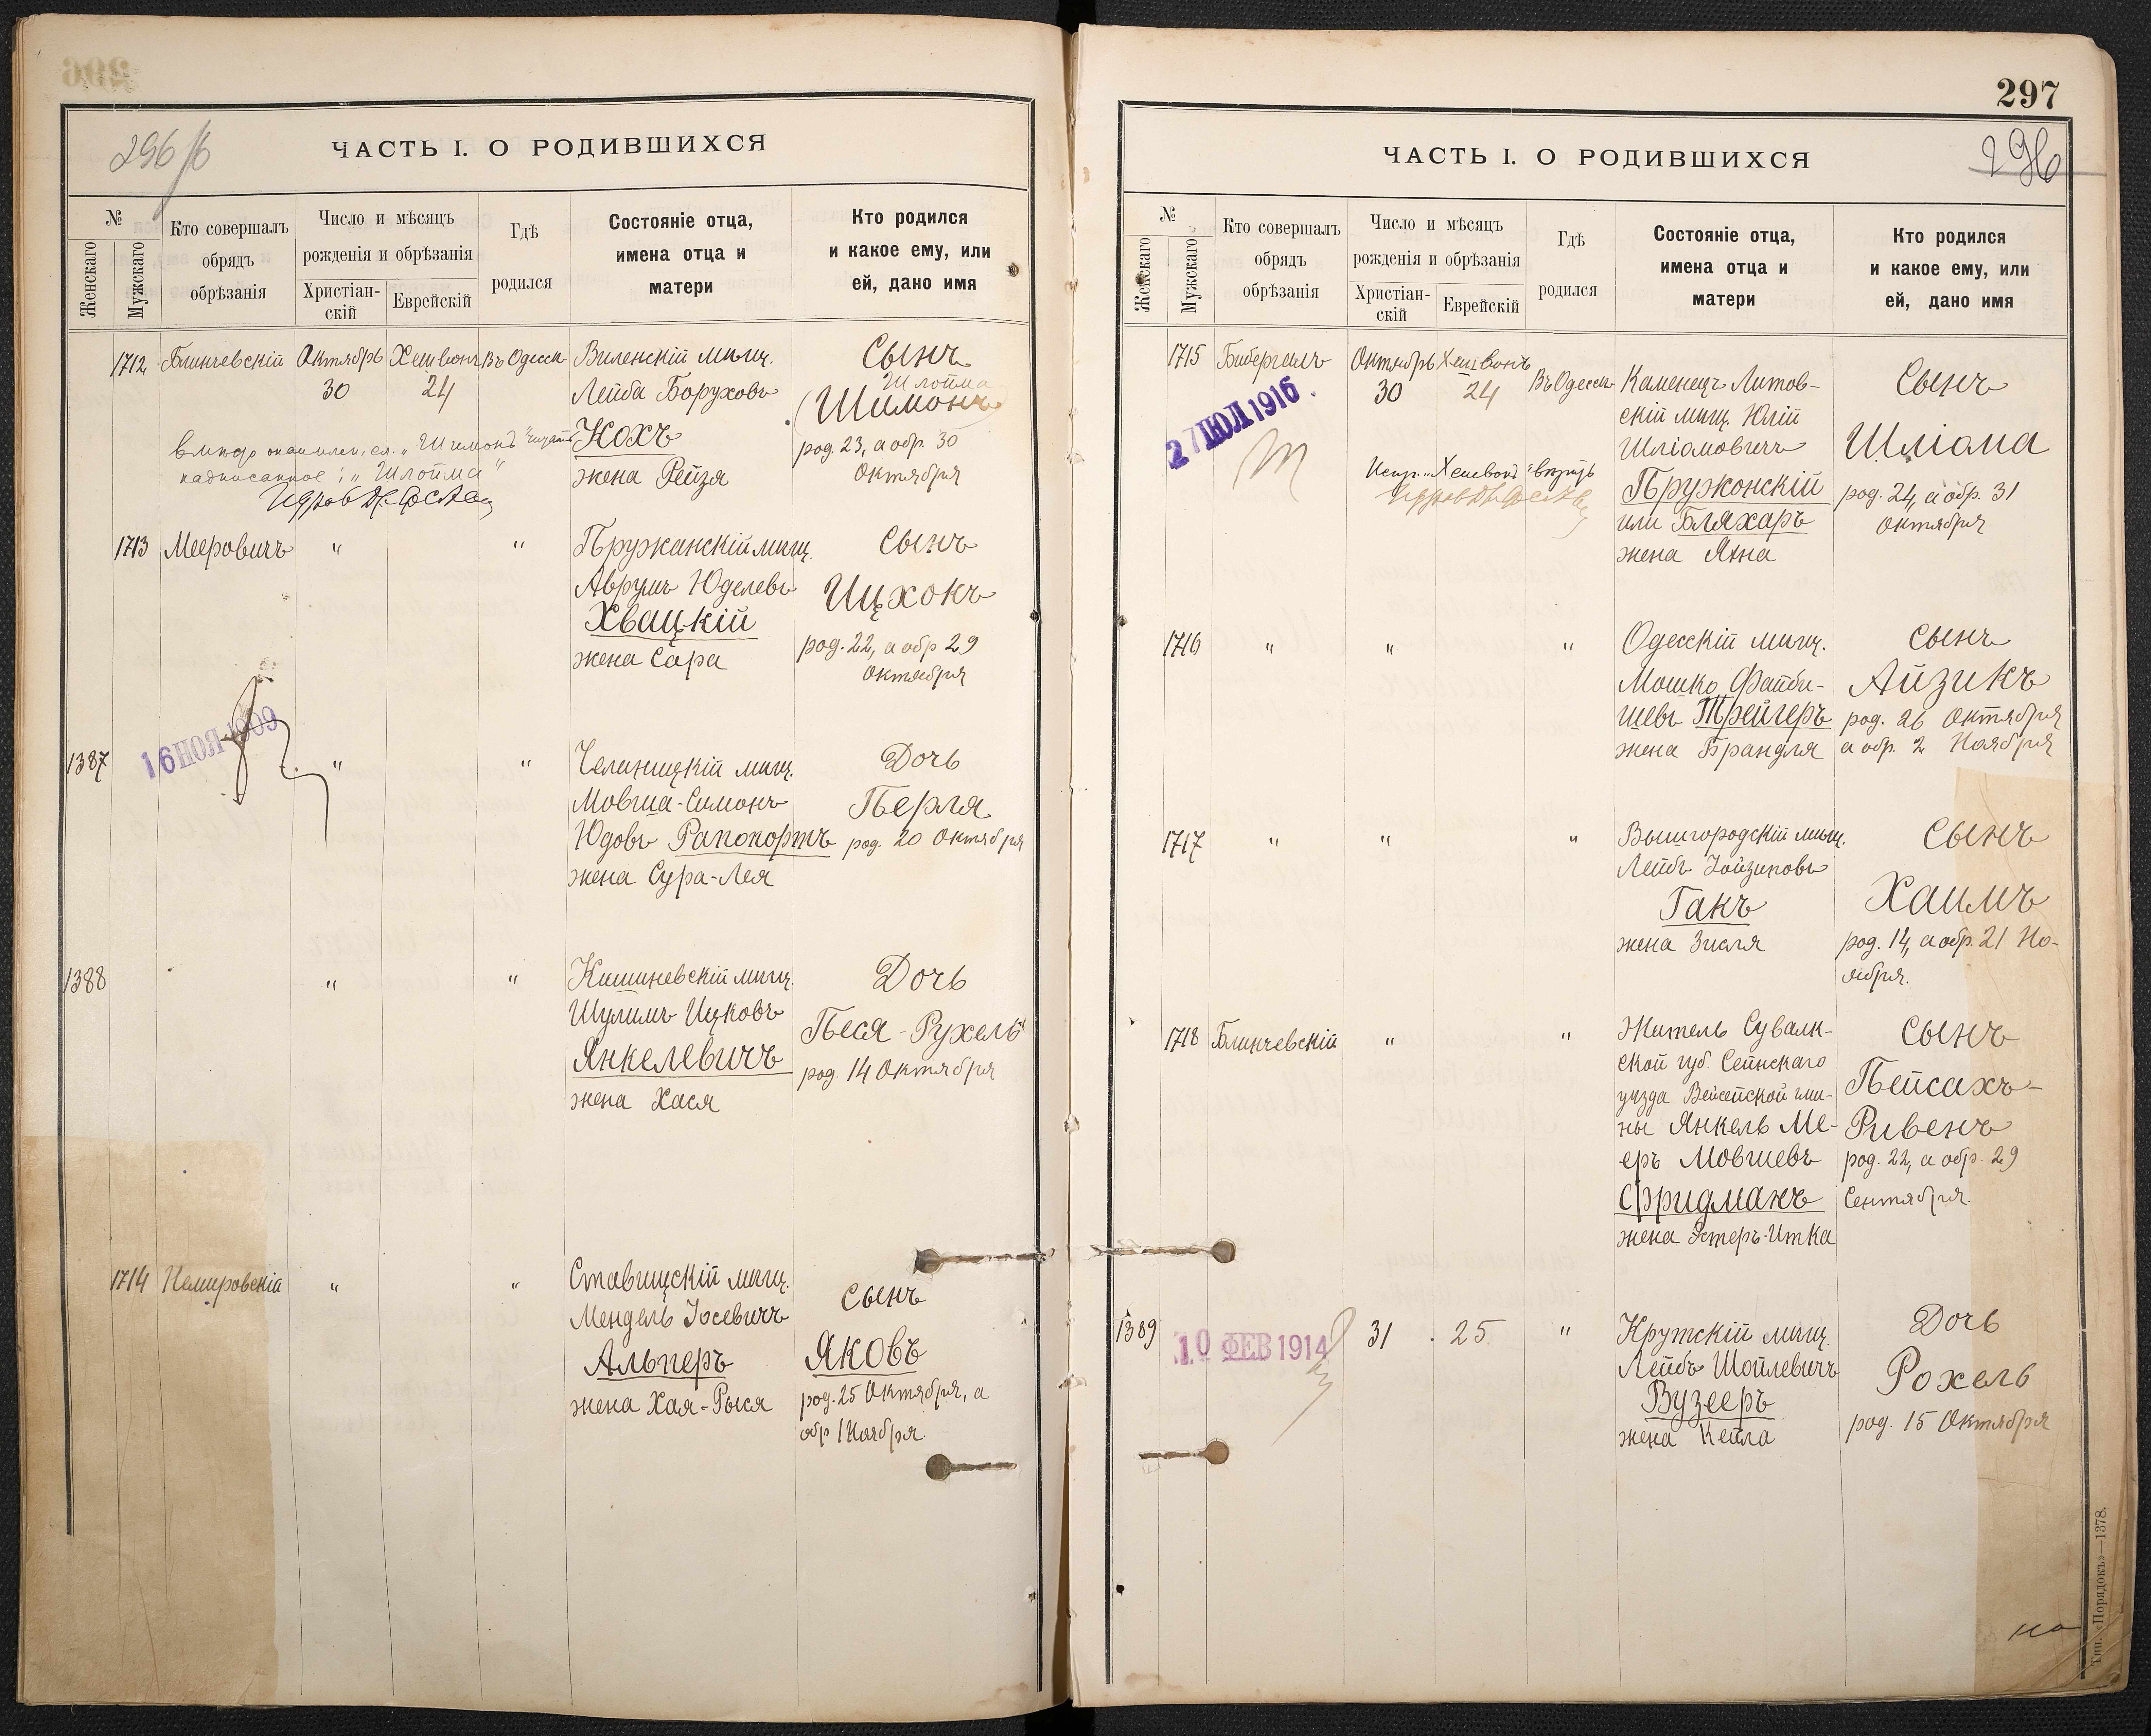 296
296 /б
ЧАСТЬ I. О РОДИВШИХСЯ
№
Женскаго
Мужскаго
Кто совершалъ
обрядъ
обрѣзанія
Число и мѣсяцъ
рожденія и обрѣзанія
Христіан-
скій
Еврейскій
Гдѣ
родился
Состояніе отца,
имена отца и
матери
Кто родился
и какое ему, или
ей, дано имя
1712 Блинчевскій Октябрь Хешвонъ Въ Одессѣ Виленскій мѣщ. Сынъ
30 24 Лейба Боруховъ Шлойма
(Шимонъ)
Кохъ род. 23, а обр. 30
жена Рейзя Октября
вмѣсто "Шимонъ" читать
надписанное: "Шлойма"
1713 Мееровичъ " " Пружанскій мѣщ. Сынъ
Аврумъ Юделевъ Ицхокъ
Хвацкій
жена Сара род. 22, а обр 29
Октября
16 НОЯ 1909
1387 " " мѣщ. Дочь
Мовша-Симонъ Перля
Юдовъ Рапопортъ род. 20 Октября
жена Сура-Лея
1388 " " Кишиневскій мѣщ. Дочь
Шулимъ Ицковъ Песя-Рухель
Янкелевичъ род. 14 Октября
жена Хася
1714 Немировскій " " Ставищскій мѣщ. Сынъ
Мендель Іосевичъ
Альперъ Яковъ
жена Хая-Рыся род. 25 Октября, а
обр 1 Ноября.
297
296
ЧАСТЬ I. О РОДИВШИХСЯ
№
Женскаго
Мужскаго
Кто совершалъ
обрядъ
обрѣзанія
Число и мѣсяцъ
рожденія и обрѣзанія
Христіан-
скій
Еврейскій
Гдѣ
родился
Состояніе отца,
имена отца и
матери
Кто родился
и какое ему, или
ей, дано имя
1715 Бибергалъ Октябрь Хешвонъ Въ Одессѣ Каменецъ Литов- Сынъ
30 24 скій мѣщ. Юлій
27 ІЮЛ 1916
Шліомовичъ Шліома
Испр. "Хешвонъ" вѣрить
Пружонскій род. 24, а обр. 31
или Бляхаръ Октября
жена Яхна
1716 " " " Одесскій мѣщ. Сынъ
Мошко Файби- Айзикъ
шевъ Трейгеръ род. 26 Октября
жена Брандля а обр. 2 Ноября
1717 " " " Вышгородскій мѣщ. Сынъ
Лейбъ
Гакъ Хаимъ
жена Зисля род. 14, а обр. 21 Но-
ября.
1718 Блинчевскій " " Житель Сувалк- Сынъ
ской губ. Сейнскаго
уѣзда Вейсейской гми- Пейсахъ-
ны Янкель Ме- Ривенъ
еръ Мовшевъ род. 22, а обр. 29
Фридманъ Сентября.
жена Эстеръ-Итка
1389 10 ФЕВ 1914 31 25 " Крутскій мѣщ. Дочь
Лейбъ Шойлевичъ
Вузееръ Рохель
жена Кейла род. 15 Октября
Тип. «Порядокъ»—1378.